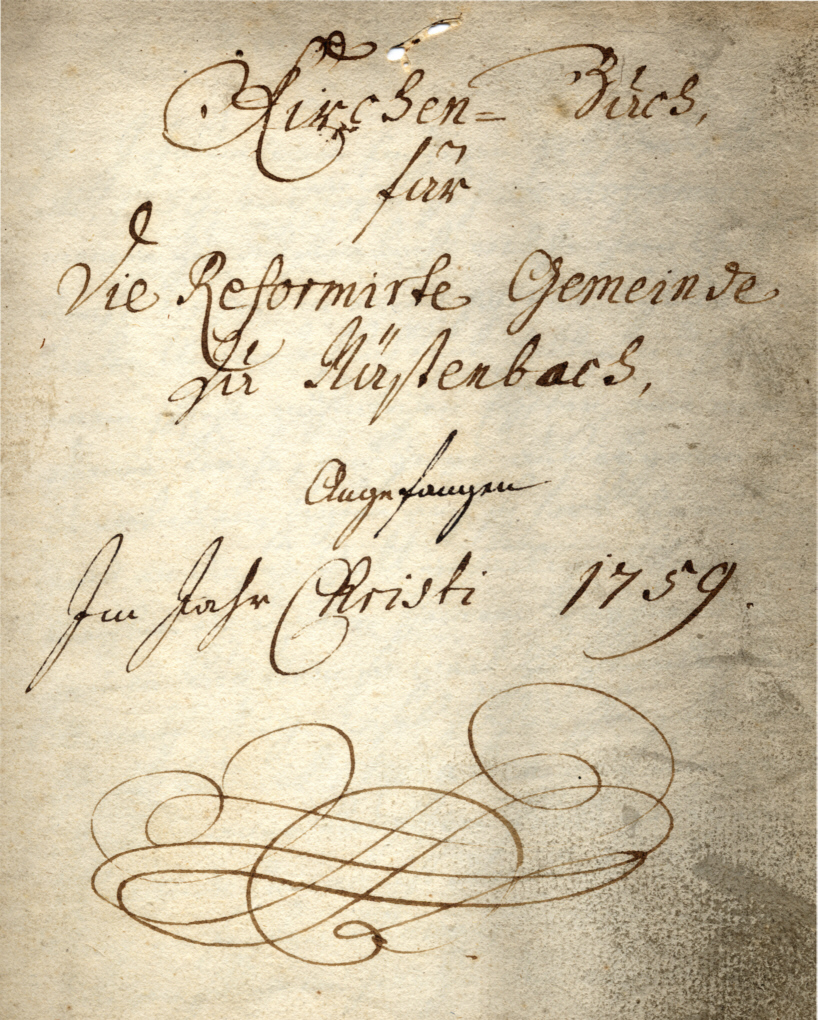 Kirchen= Buch,
für
Die Reformirte Gemeinde
Zu Nüstenbach,
Angefangen
Im Jahr Christi 1759.